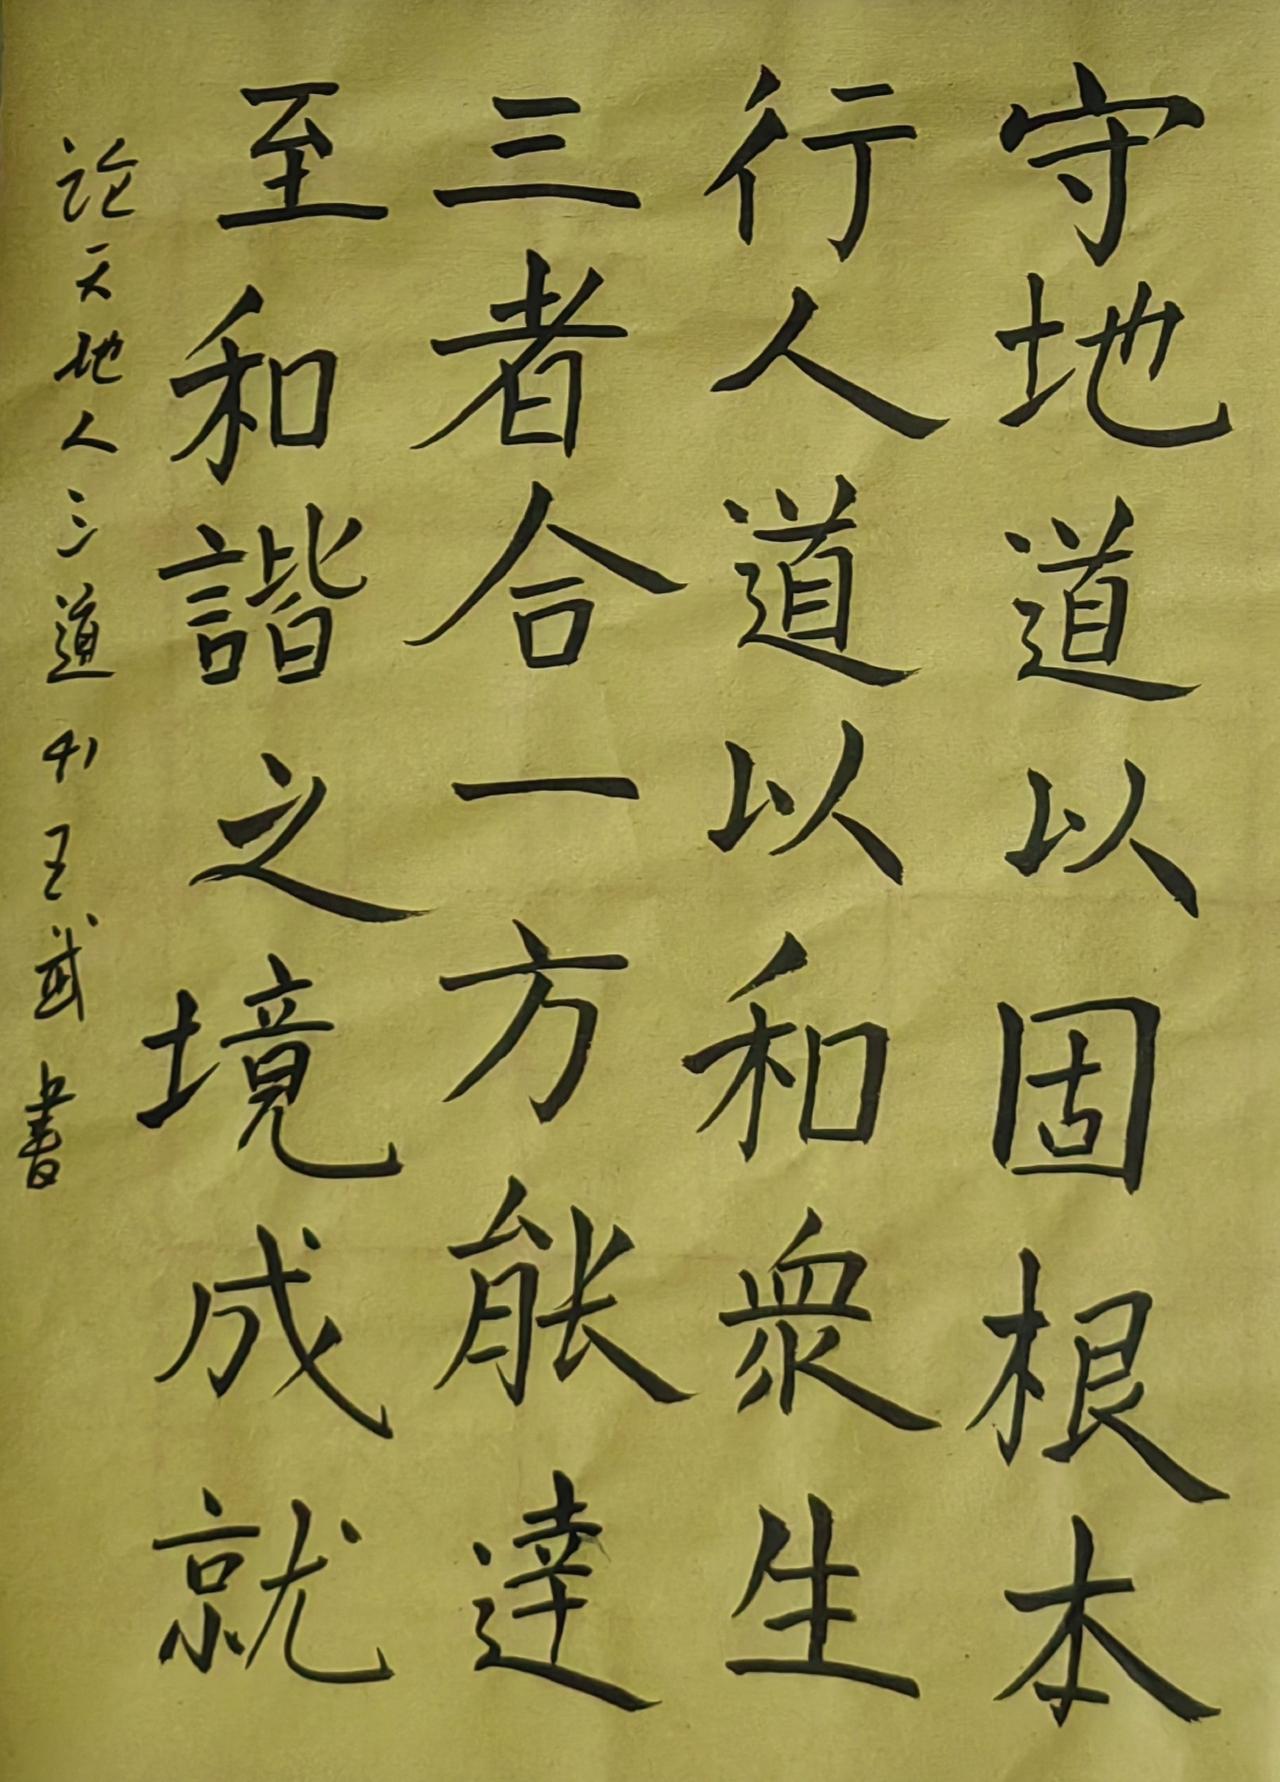 守地道以固根本
行人道以和眾生
三者合一方能達
至和諧之境成就
论天地人三道 41 王武 書